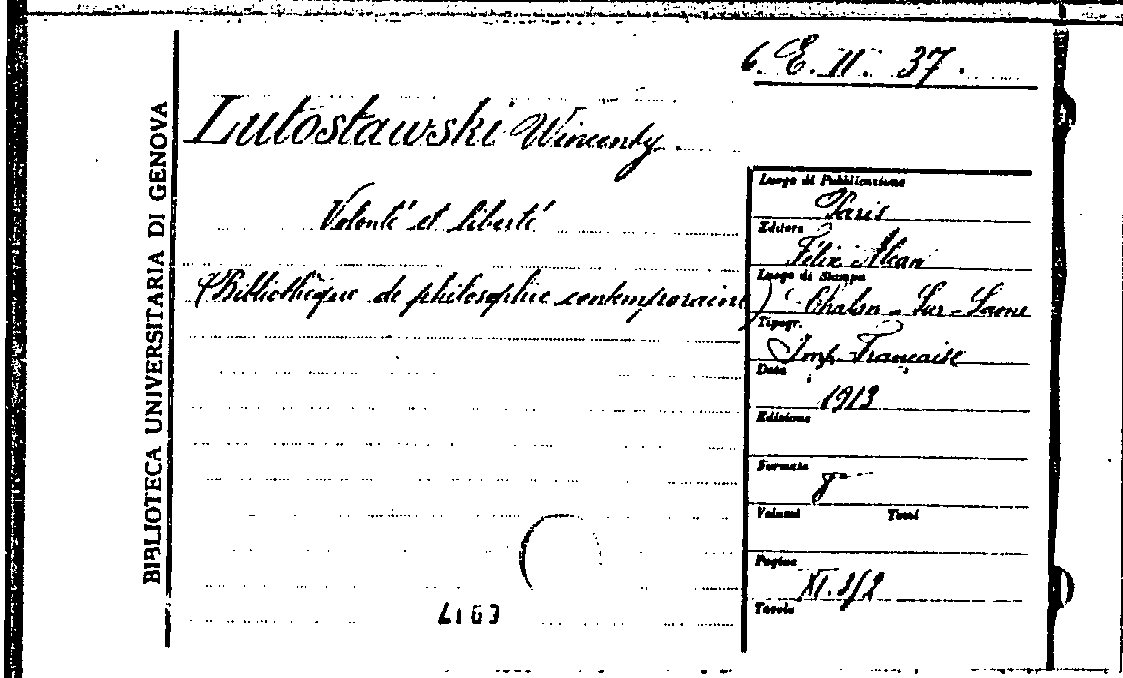 6. E. II. 37.
BIBLIOTECA UNIVERSITARIA DI GENOVA
Lutosławski Wincenty
Volonté et liberté
(Bibliothèque de philosophie contemporaine)
Luogo di Pubblicazione
Paris
Editore
Félix Alcan
Luogo di Stampa
Chalon-Sur-Saone
Tipogr.
Imp. Française
Data
1913
Edizione
Formato
8°
Volumi Tomi
Pagine
XI. 352
Tavole